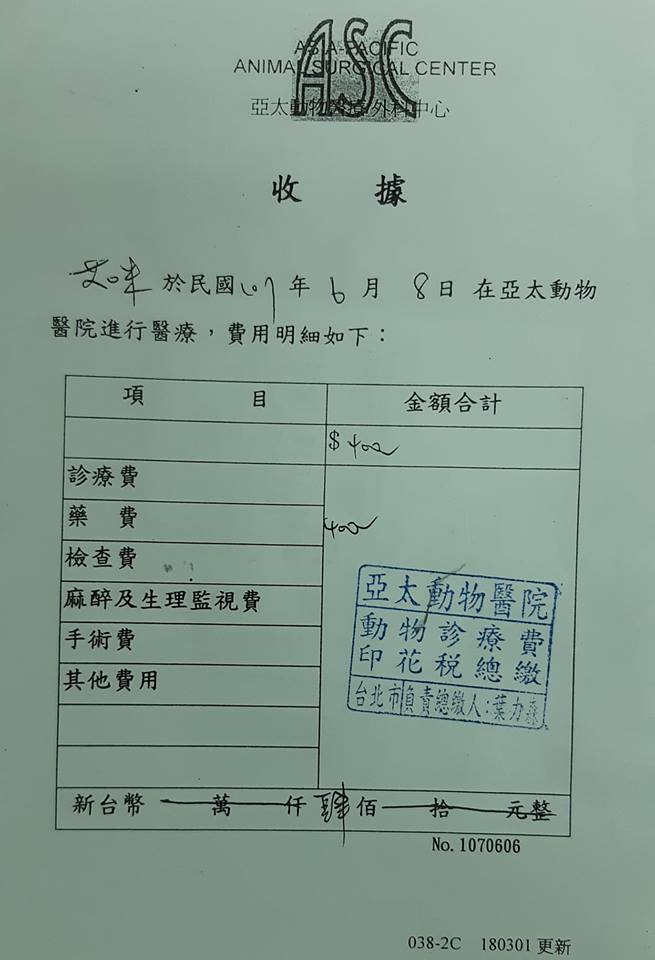 ASC
ASIA-PACIFIC
ANIMAL SURGICAL CENTER
亞太動物醫療外科中心
收 據
艾咪 於民國107年 6月 8日 在亞太動物
醫院進行醫療，費用明細如下：
項 目 金額合計
$400
診療費
藥 費 400
檢查費
麻醉及生理監視費
手術費
其他費用
亞太動物醫院
動物診療費
印花稅總繳
台北市負責總繳人：葉力森
新台幣 萬 仟 肆佰 拾 元整
No. 1070606
038-2C 180301 更新